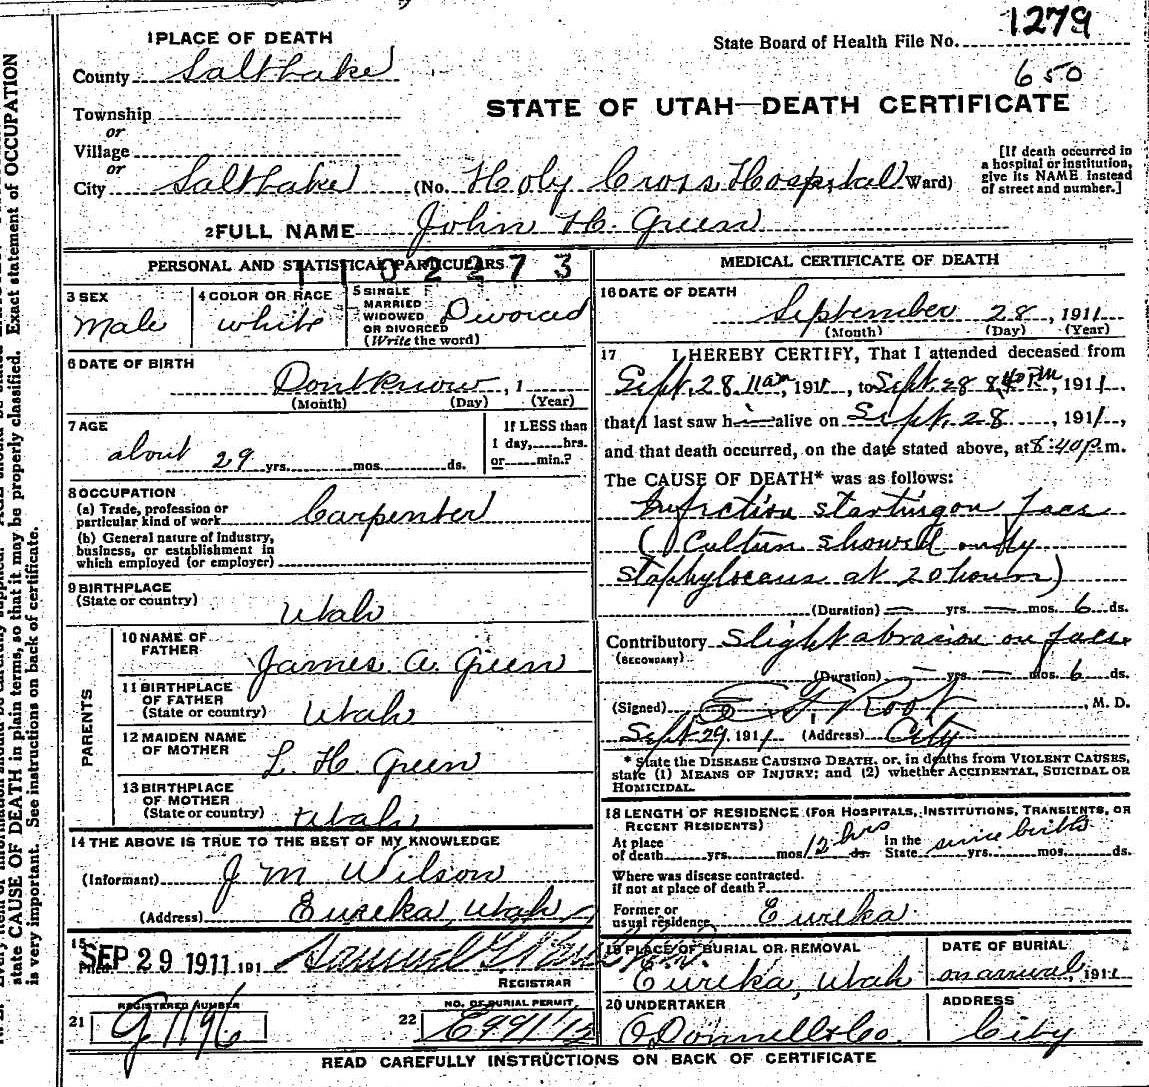 1279
1 PLACE OF DEATH
State Board of Health File No.
County Salt Lake
650
STATE OF UTAH—DEATH CERTIFICATE
Township
or
Village
or
City Salt Lake (No. Holy Cross Hospital Ward)
[If death occurred in
a hospital or institution,
give its NAME instead
of street and number.]
2 FULL NAME John H. Green
PERSONAL AND STATISTICAL PARTICULARS
1102273
3 SEX
Male
4 COLOR OR RACE
White
5 SINGLE
MARRIED
WIDOWED
OR DIVORCED
(Write the word)
Divorced
6 DATE OF BIRTH
Dont know, 1
(Month) (Day) (Year)
7 AGE
about 29 yrs. mos. ds.
If LESS than
1 day, hrs.
or min.?
8 OCCUPATION
(a) Trade, profession or
particular kind of work Carpenter
(b) General nature of industry,
business, or establishment in
which employed (or employer)
9 BIRTHPLACE
(State or country)
Utah
PARENTS
10 NAME OF
FATHER
James A. Green
11 BIRTHPLACE
OF FATHER
(State or country) Utah
12 MAIDEN NAME
OF MOTHER
L. H. Green
13 BIRTHPLACE
OF MOTHER
(State or country) Utah
14 THE ABOVE IS TRUE TO THE BEST OF MY KNOWLEDGE
(Informant) J M Wilson
(Address) Eureka, Utah
15
SEP 29 1911 191
Samuel G.
REGISTRAR
REGISTERED NUMBER
21 G1196
NO. OF BURIAL PERMIT
22
MEDICAL CERTIFICATE OF DEATH
16 DATE OF DEATH
September 28, 1911
(Month) (Day) (Year)
17 I HEREBY CERTIFY, That I attended deceased from
Sept. 28 11am, 1911, to Sept. 28 8 40 PM, 1911,
that I last saw h alive on Sept. 28, 1911,
and that death occurred, on the date stated above, at 8:40 p.m.
The CAUSE OF DEATH* was as follows:
Infection starting on face
(Culture showed only
Staphylococcus at 20 hours)
(Duration) — yrs. — mos. 6 ds.
Contributory Slight abrasion on face.
(SECONDARY)
(Duration) — yrs. — mos. 6 ds.
(Signed) Root, M. D.
Sept 29, 1911 (Address) City
* State the DISEASE CAUSING DEATH, or, in deaths from VIOLENT CAUSES,
state (1) MEANS OF INJURY; and (2) whether ACCIDENTAL, SUICIDAL OR
HOMICIDAL.
18 LENGTH OF RESIDENCE (FOR HOSPITALS, INSTITUTIONS, TRANSIENTS, OR
RECENT RESIDENTS)
At place
of death yrs. mos. 12 hrs ds.
In the
State since birth yrs. mos. ds.
Where was disease contracted.
if not at place of death?
Former or
usual residence Eureka
19 PLACE OF BURIAL OR REMOVAL
Eureka, Utah
DATE OF BURIAL
on arrival, 1911
20 UNDERTAKER
O'Donnell & Co.
ADDRESS
City
READ CAREFULLY INSTRUCTIONS ON BACK OF CERTIFICATE
state CAUSE OF DEATH in plain terms, so that it may be properly classified. Exact statement of OCCUPATION
is very important. See instructions on back of certificate.